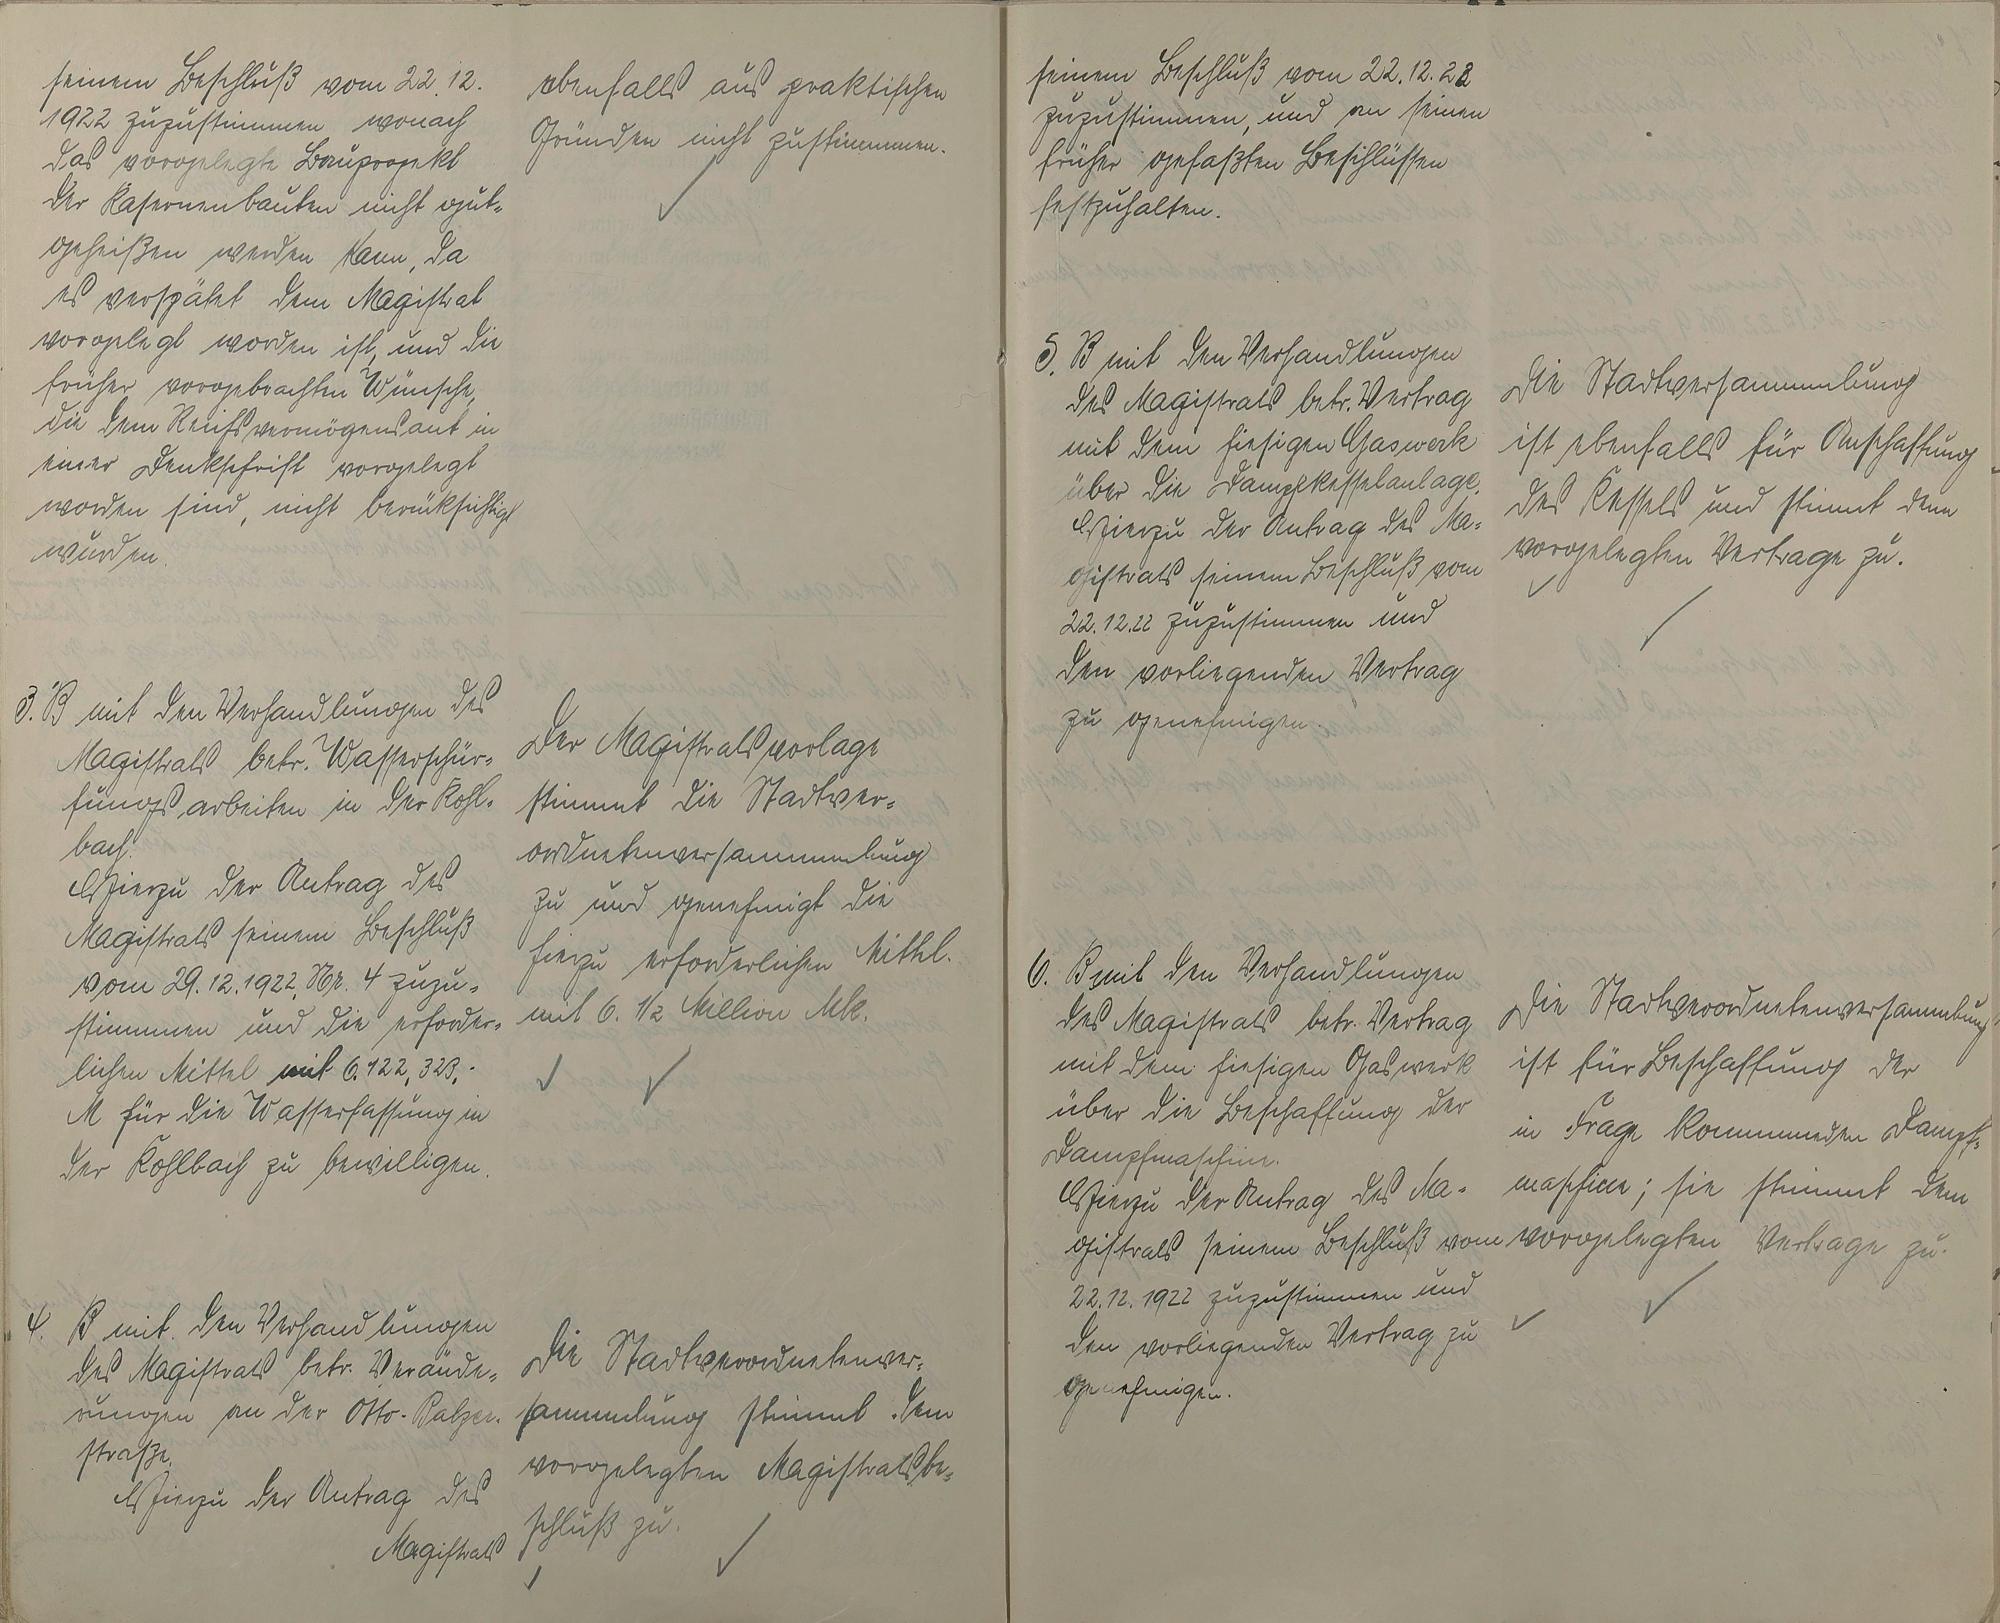 seinem Beschluß vom 22.12.
1922 zuzustimmen wonach
das vorgelegte Bauprojekt
der Kasernenbauten nicht gut-
geheißen werden kann, da
es verspätet dem Magistrat
vorgelegt worden ist, und die
früher vorgebrachten Wünsche,
die dem Reichsvermögensamt in
einer Denkschrift vorgelegt
worden sind, nicht berücksichtigt
wurden.
ebenfalls aus praktischen
Gründen nicht zustimmen.
3. B mit den Verhandlungen des
Magistrats betr. Wasserschür-
fungsarbeiten in der Kohl-
bach.
Hierzu der Antrag des
Magistrats seinem Beschluß
vom 29.12.1922, Nr. 4 zuzu-
stimmen und die erforder-
lichen Mittel mit 6.122,323,-
M für die Wasserfassung in
der Kohlbach zu bewilligen.
Der Magistratsvorlage
stimmt die Stadtver-
ordnetenversammlung
zu und genehmigt die
hierzu erforderlichen Mittel.
mit 6. 1/2 Million Mk.
4. B mit den Verhandlungen
des Magistrats betr. Verände-
rungen an der Otto-Balzer-
straße.
Hierzu der Antrag des
Magistrats
Die Stadtverordnetenver-
sammlung stimmt dem
vorgelegten Magistratsbe-
schluß zu.
seinem Beschluß vom 22.12.22
zuzustimmen, und an seinen
früher gefaßten Beschlüssen
festzuhalten.
5. B mit den Verhandlungen
des Magistrats betr. Vertrag
mit dem hiesigen Gaswerk
über die Dampfkesselanlage.
Hierzu der Antrag des Ma-
gistrats seinem Beschluß vom
22.12.22 zuzustimmen und
den vorliegenden Vertrag
zu genehmigen.
Die Stadtversammlung
ist ebenfalls für Anschaffung
des Kessels und stimmt dem
vorgelegten Vertrage zu.
6. B mit den Verhandlungen
des Magistrats betr. Vertrag
mit dem hiesigen Gaswerk
über die Beschaffung der
Dampfmaschine.
Hierzu der Antrag des Ma-
gistrats seinem Beschluß vom
22.12.1922 zuzustimmen und
den vorliegenden Vertrag zu
genehmigen.
Die Stadtverordnetenversammlung
ist für Beschaffung der
in Frage kommenden Dampf-
maschine; sie stimmt dem
vorgelegten Vertrage zu.